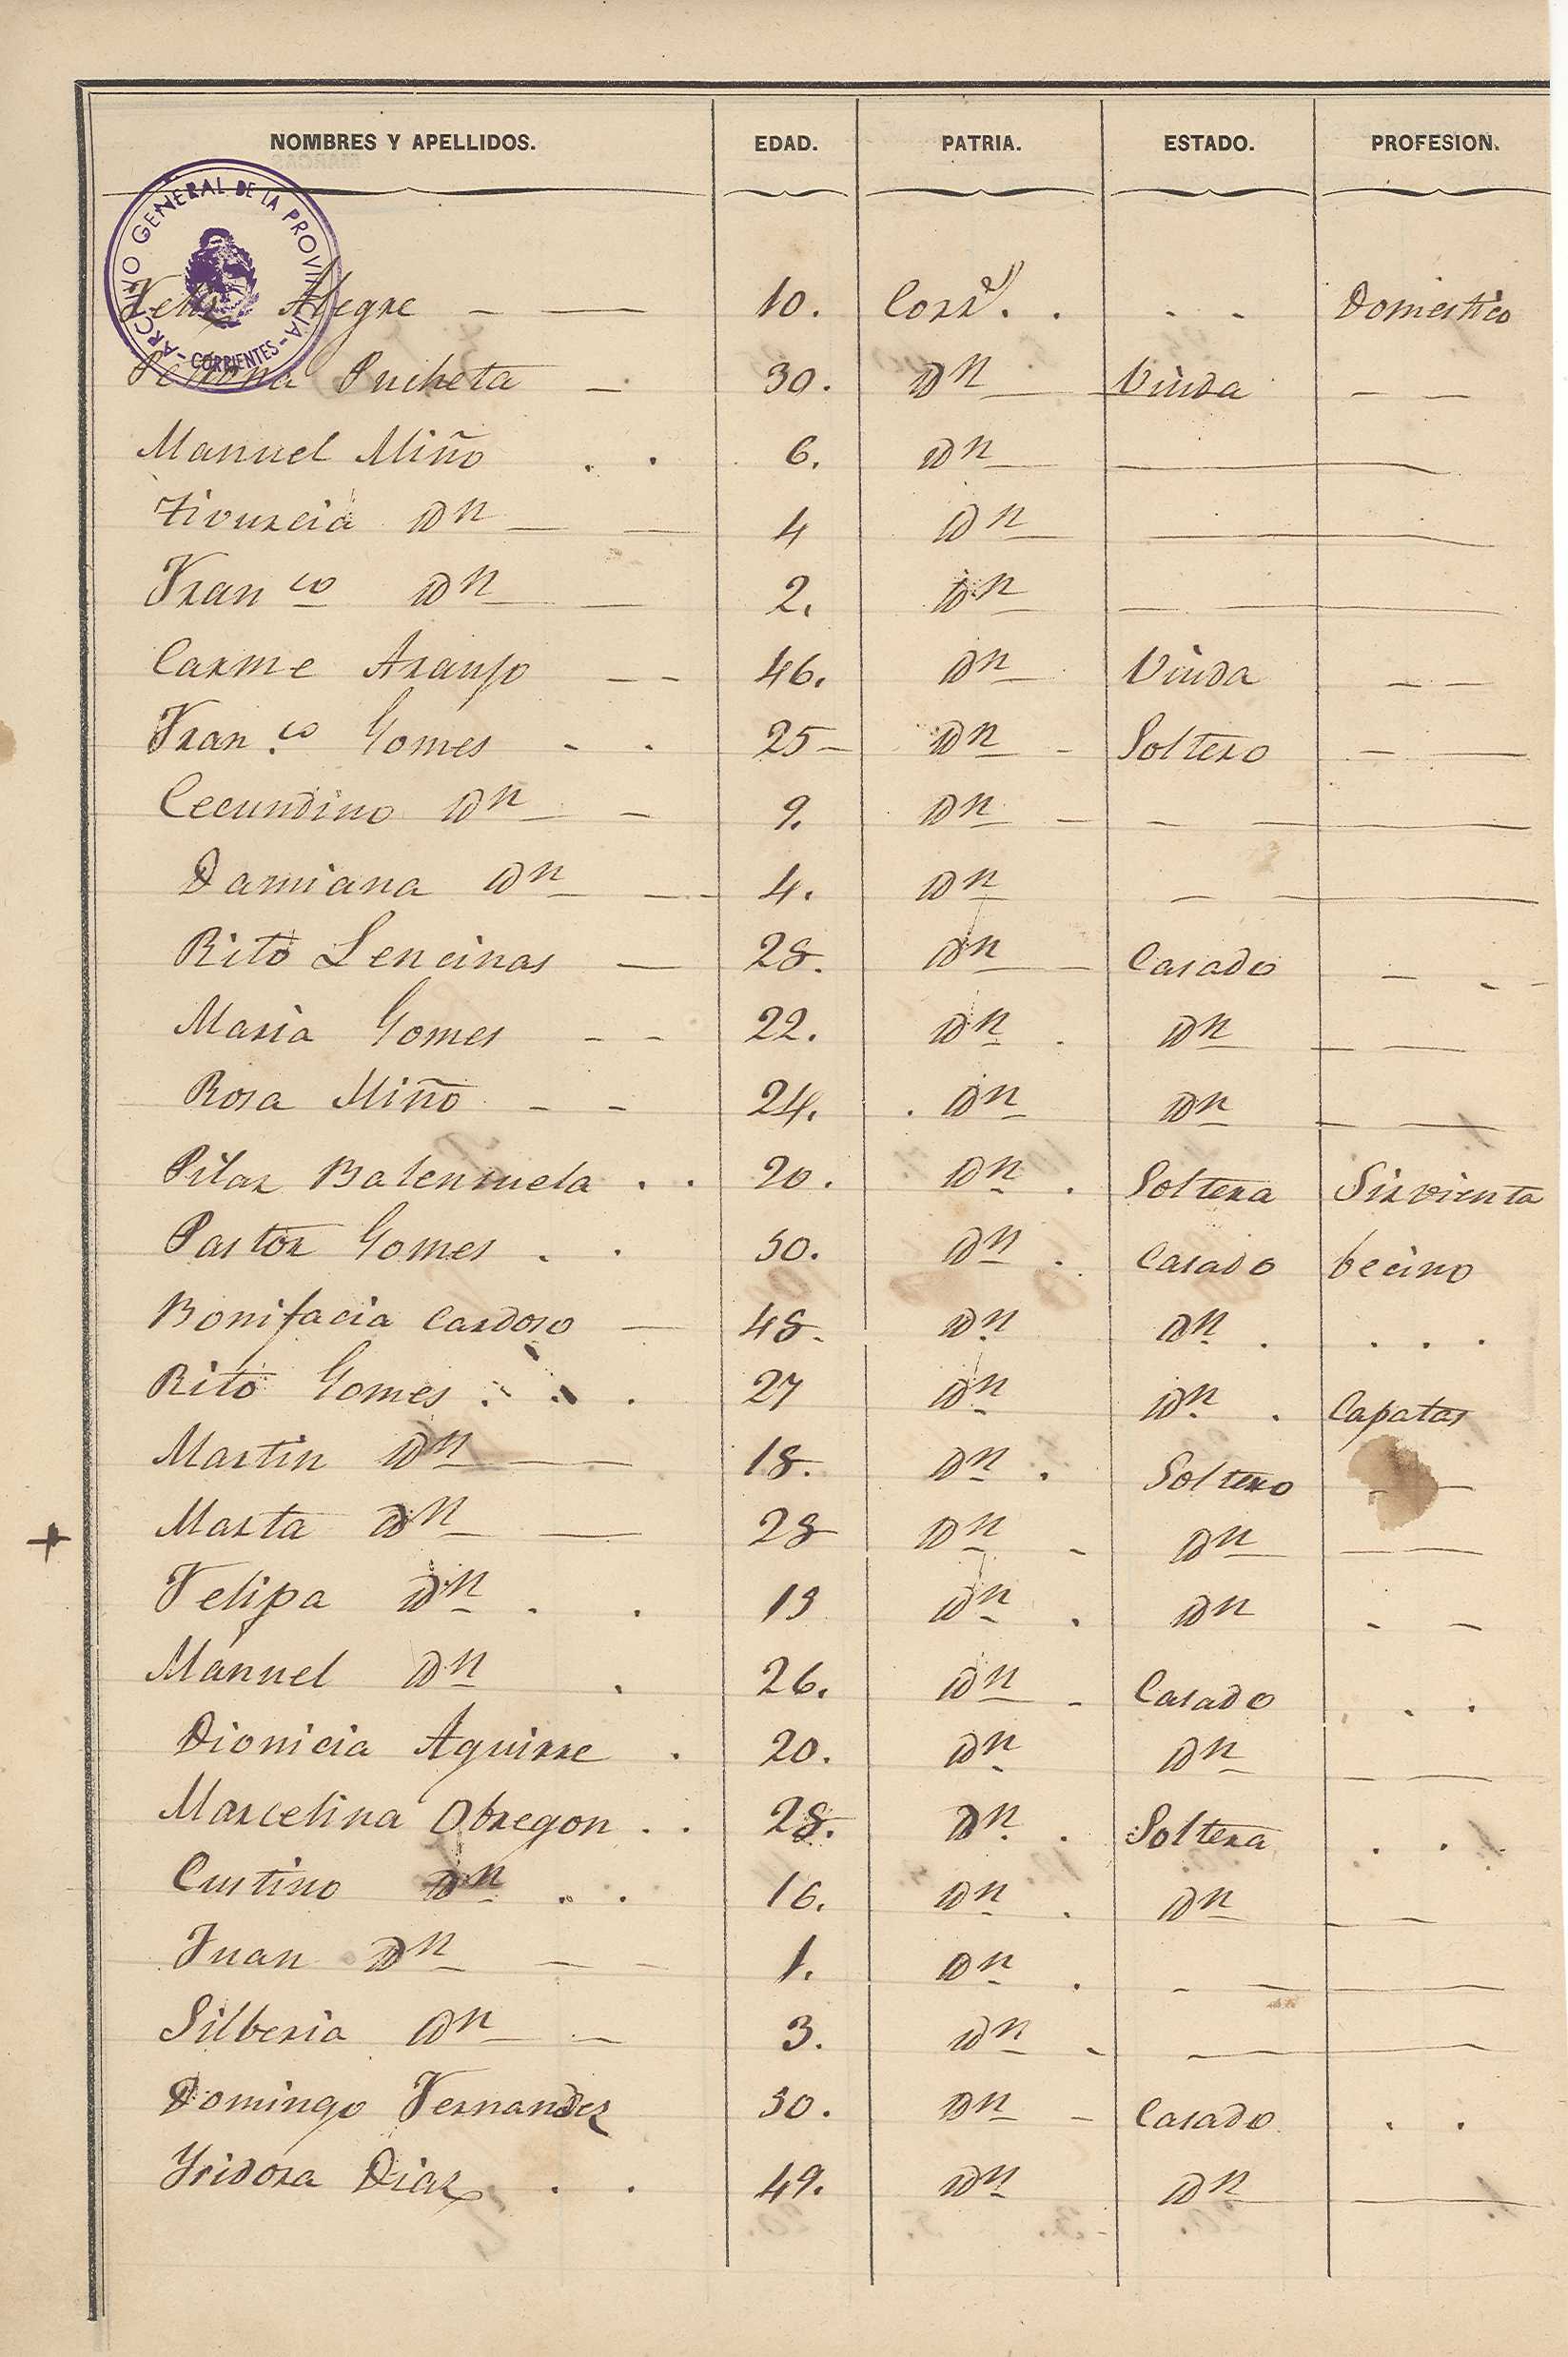 NOMBRES Y APELLIDOS. EDAD. PATRIA. ESTADO. PROFESION.
ARCHIVO GENERAL DE LA PROVINCIA - CORRIENTES -
Felix Alegre 10. Corr.s Domestico
Petrona Pucheta 30. Dn Viuda
Manuel Miño 6. Dn
Tivurcia Dn 4 Dn
Franco Dn 2. Dn
Carme Araujo 46. Dn Viuda
Fran.co Gomes 25 Dn Soltero
Cecundino Dn 9. Dn
Damiana Dn 4. Dn
Rito Lencinas 28. Dn Casado
Maria Gomes 22. Dn Dn
Rosa Miño 24. Dn Dn
Pilar Balensuela 20. Dn Soltera Sirvienta
Pastor Gomes 50. Dn Casado becino
Bonifacia Cardoso 48. Dn Dn
Rito Gomes 27 Dn Dn Capatas
Martin Dn 18. Dn Soltero
Marta Dn 28 Dn Dn
Felipa Dn 13 Dn Dn
Manuel Dn 26. Dn Casado
Dionicia Aguirre 20. Dn Dn
Marcelina Obregon 28. Dn Soltera
Custino Dn 16. Dn Dn
Juan Dn 1. Dn
Silberia Dn 3. Dn
Domingo Fernandez 50. Dn Casado
Ysidora Diaz 49. Dn Dn